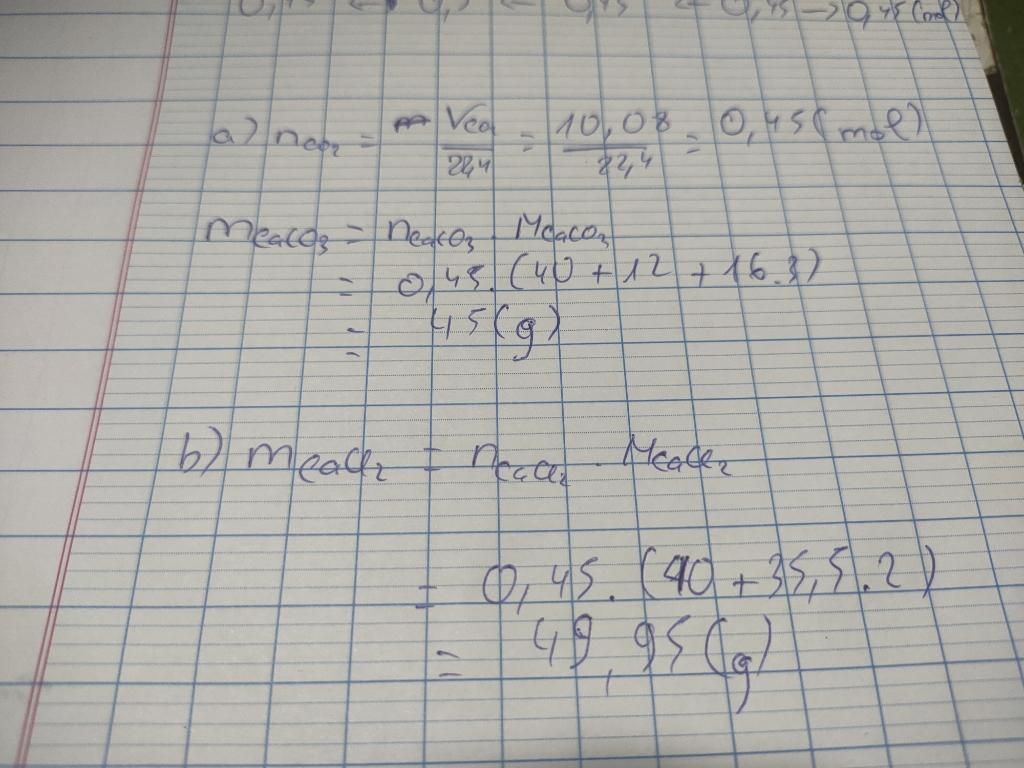 0,45 ← 0, ← 0,45 ← 0,45 → 0,45 (mol)
a) nCO₂ = VCO/22,4 = 10,08/22,4 = 0,45 (mol)
mCaCO₃ = nCaCO₃ . MCaCO₃
= 0,45. (40 + 12 + 16.3)
= 45 (g)
b) mCaCl₂ = nCaCl₂ . MCaCl₂
= 0,45. (40 + 35,5.2)
= 49,95 (g)